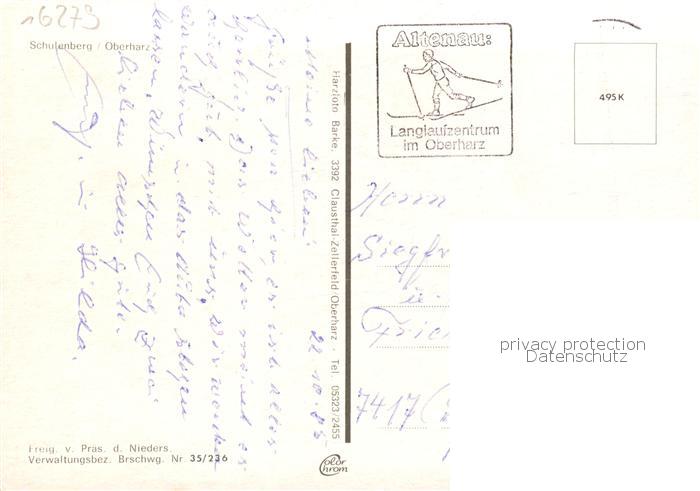 16273
Schulenberg / Oberharz
Meine Lieben!
22.10.83
Grüße von hier, es ist alles
herrlich. Das Wetter meint es
auch gut mit uns. Wir werden
wandern in das
lassen. Wünschen Euch Zwei
Lieben alles Gute.
in Hilda.
Harzfoto Barke, 3392 Clausthal-Zellerfeld/Oberharz · Tel. 05323/2455
Altenau:
Langlaufzentrum
im Oberharz
495 K
Herrn
Siegfr
u.
7417
privacy protection
Datenschutz
Freig. v. Präs. d. Nieders.
Verwaltungsbez. Brschwg. Nr. 35/236
Color
Chrom